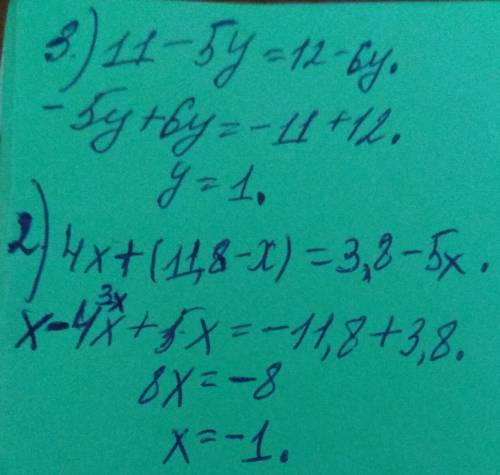 3.) 11 - 5y = 12 - 6y.
-5y + 6y = -11 + 12.
y = 1.
2.) 4x + (11,8 - x) = 3,8 - 5x.
3x
x - 4x + 5x = -11,8 + 3,8.
8x = -8
x = -1.